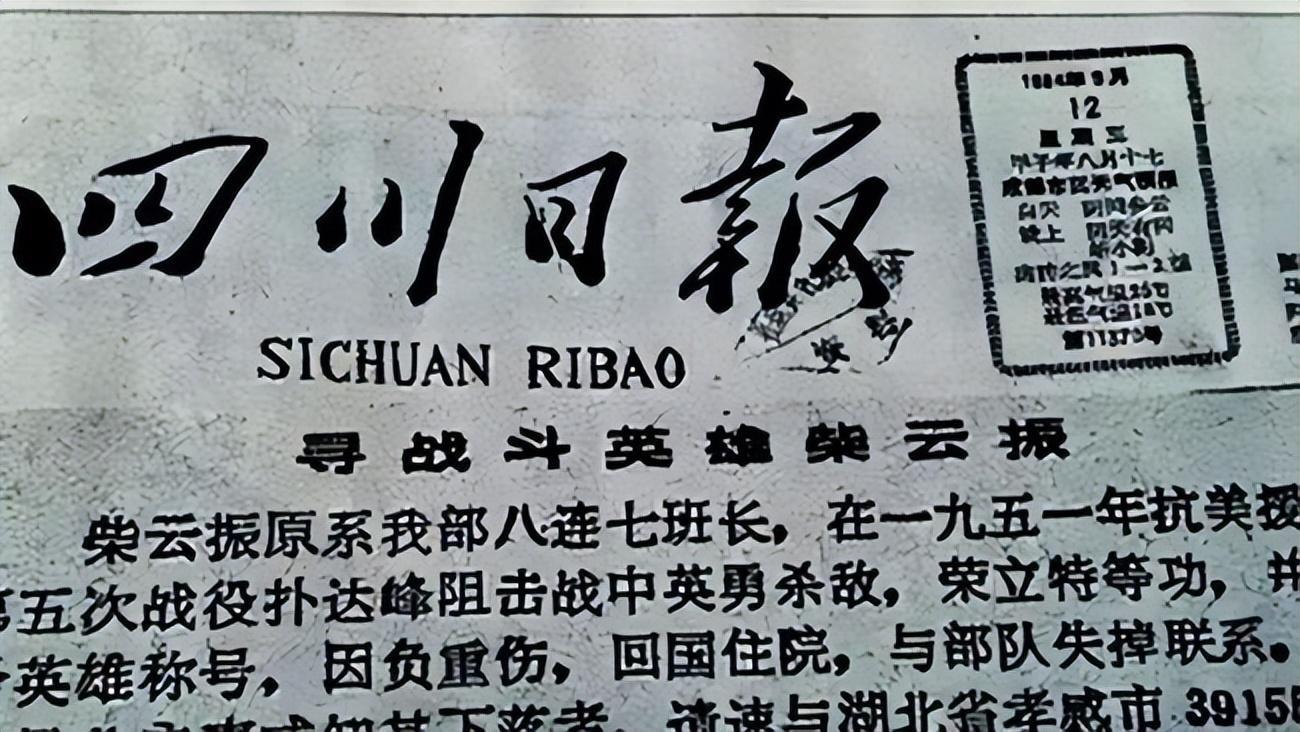 四川日报
SICHUAN RIBAO
1984年9月
12
星期三
甲子年八月十七
成都市区天气预报
白天 阴间多云
晚上 阴天有阵
最高气温25℃
最低气温18℃
寻战斗英雄柴云振
柴云振原系我部八连七班长，在一九五一年抗美援
五次战役扑达峰阻击战中英勇杀敌，荣立特等功，并
英雄称号，因负重伤，回国住院，与部队失掉联系。
下落者，请速与湖北省孝感市 3915